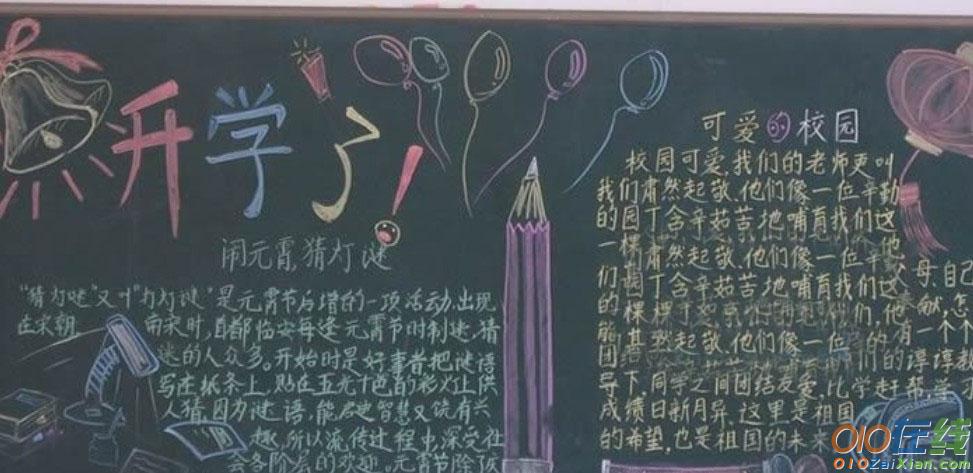 开学了!
闹元宵,猜灯谜
"猜灯谜"又叫"打灯谜"是元宵节后增的一项活动,出现
在宋朝. 南宋时,首都临安每逢元宵节时制谜,猜
谜的人众多。开始时是好事者把谜语
写在纸条上,贴在五光十色的彩灯上供
人猜.因为谜语,能启迪智慧又饶有兴
趣,所以流传过程中深受社
会各阶层的欢迎。元宵节除夜
可爱的校园
校园可爱,我们的老师更叫
我们肃然起敬.他们像一位辛勤
的园丁含辛茹苦地哺育我们这
一棵肃然起敬.他们像一位辛
们园丁含辛茹苦地哺育我们这
的棵 我们,他
然起敬.他们像一位 的有一个
团 们的谆谆教
导下,同学之间团结友爱,比学赶帮,学
成绩日新月异.这里是祖国
的希望,也是祖国的未来
母,自己
献,怎
010在线
010zaiXian.com